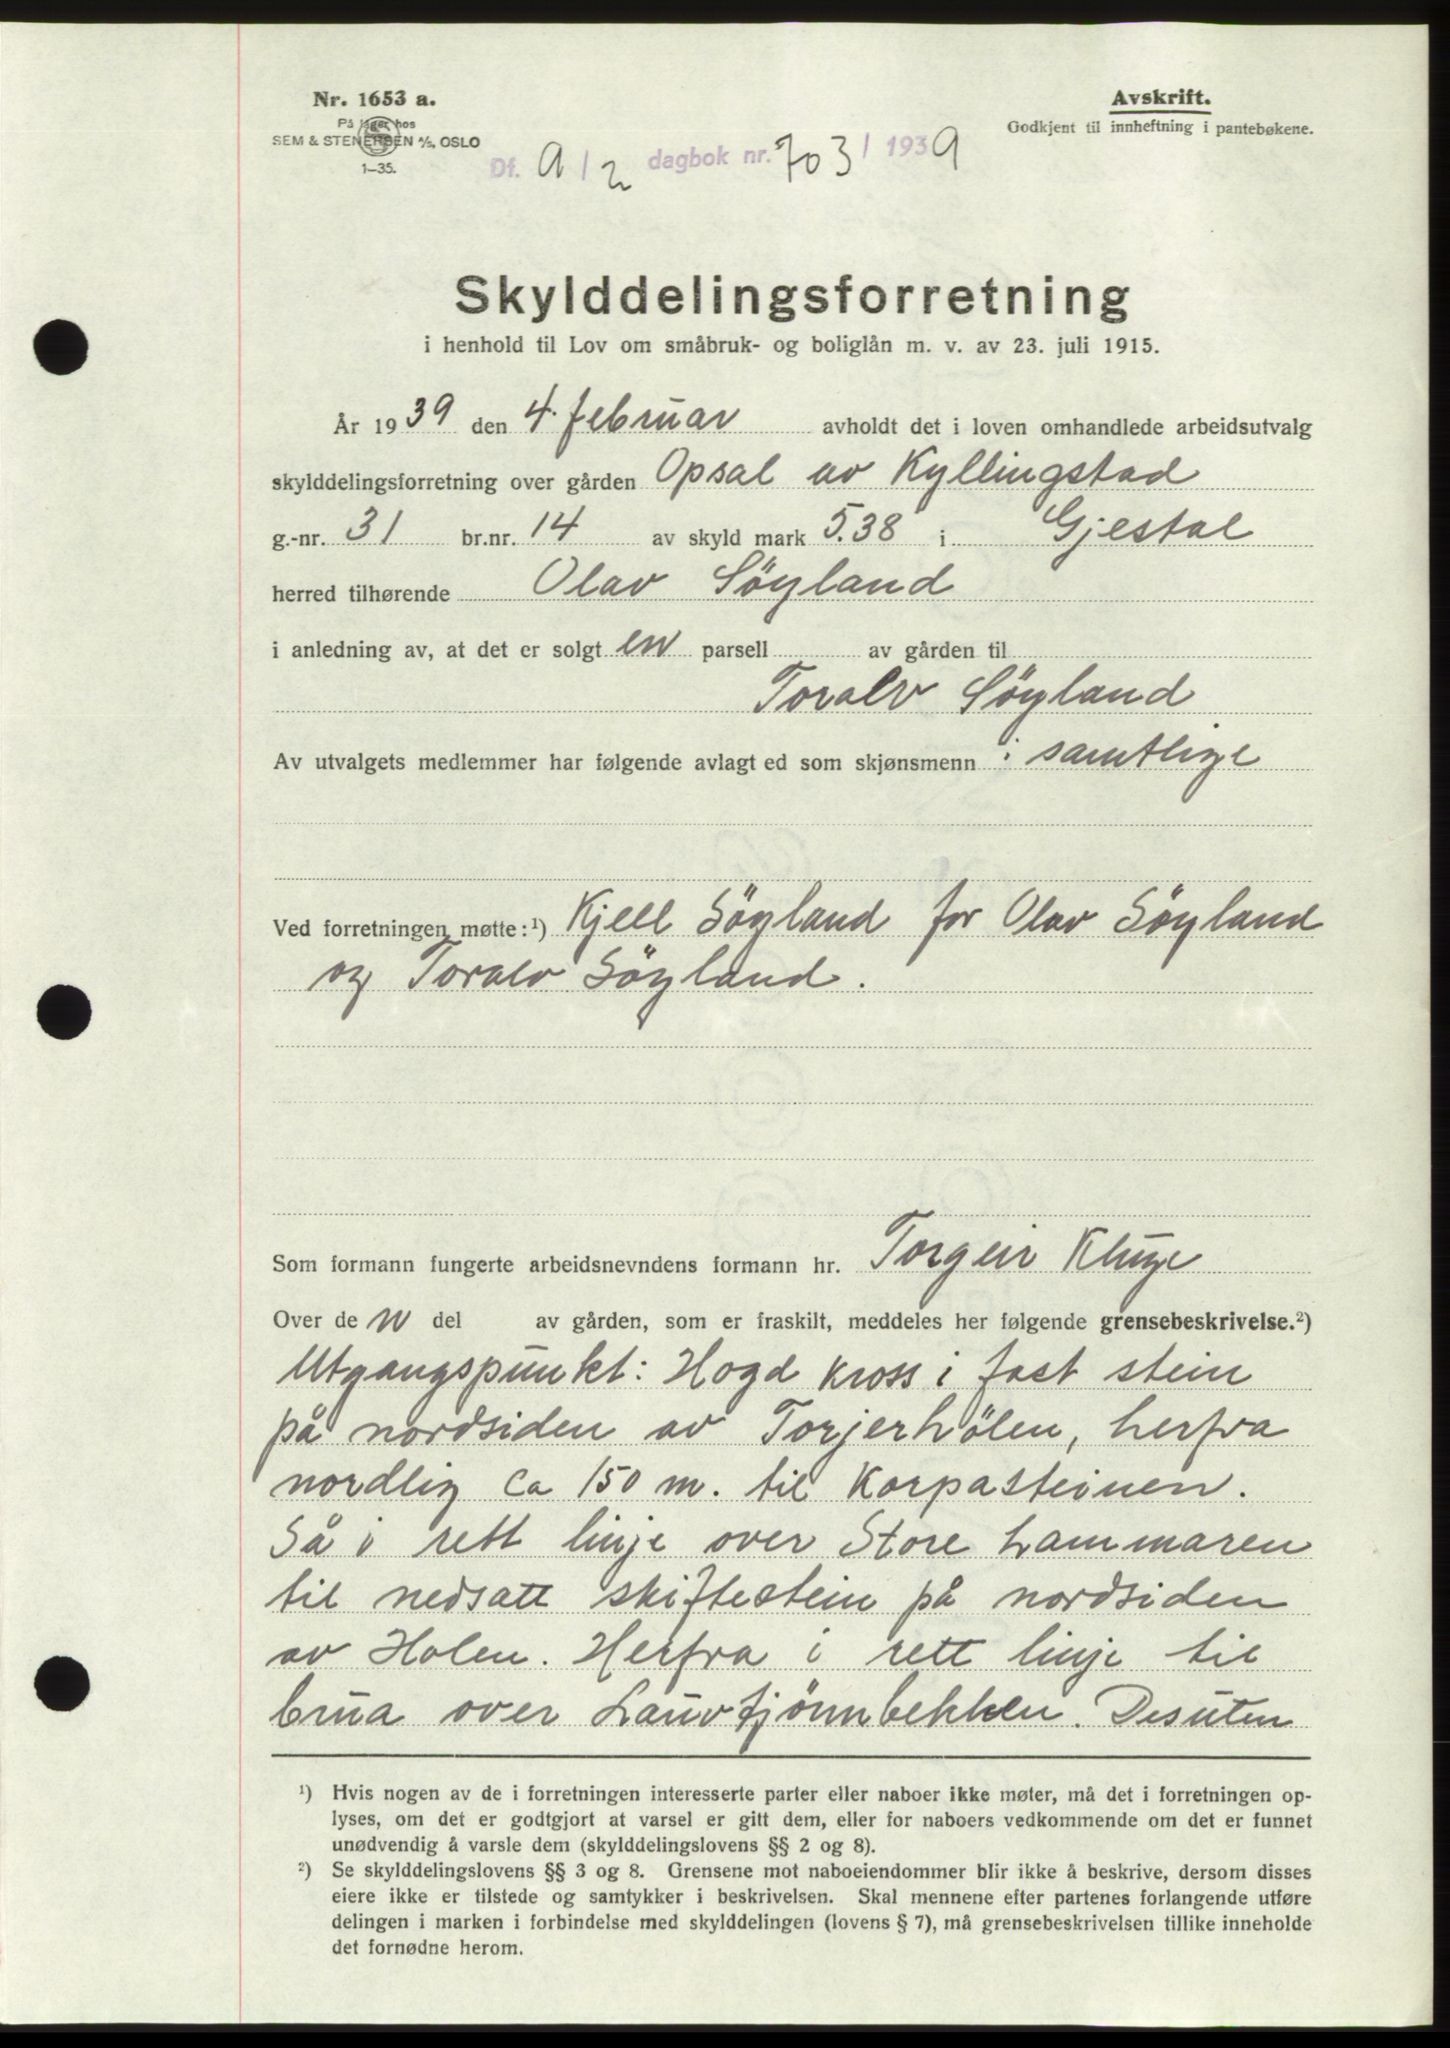 Nr. 1653 a.
På lager hos
SEM & STENERSEN A/S, OSLO
1—35.
Avskrift.
Godkjent til innheftning i pantebøkene.
Df. 9/2 dagbok nr. 703/1939
Skylddelingsforretning
i henhold til Lov om småbruk- og boliglån m. v. av 23. juli 1915.
År 1939 den 4. februar avholdt det i loven omhandlede arbeidsutvalg
skylddelingsforretning over gården Opsal av Kyllingstad
g.-nr. 31 br.nr. 14 av skyld mark 5.38 i Gjestal
herred tilhørende Olav Söyland
i anledning av, at det er solgt en parsell av gården til
Toralv Söyland
Av utvalgets medlemmer har følgende avlagt ed som skjønsmenn : samtlige
Ved forretningen møtte:¹) Kjell Söyland for Olav Söyland
og Toralv Söyland.
Som formann fungerte arbeidsnevndens formann hr. Torgeir Kluge
Over den del av gården, som er fraskilt, meddeles her følgende grensebeskrivelse.²)
Utgangspunkt: Hogd kross i fast stein
på nordsiden av Torjerhölen, herfra
nordlig ca 150 m. til Korpasteinen.
Så i rett linje over Store Hammaren
til nedsatt skiftestein på nordsiden
av Holen. Herfra i rett linje til
brua over Lauvtjönnbekken. Desuten
¹) Hvis nogen av de i forretningen interesserte parter eller naboer ikke møter, må det i forretningen op-
lyses, om det er godtgjort at varsel er gitt dem, eller for naboers vedkommende om det er funnet
unødvendig å varsle dem (skylddelingslovens §§ 2 og 8).
²) Se skylddelingslovens §§ 3 og 8. Grensene mot naboeiendommer blir ikke å beskrive, dersom disses
eiere ikke er tilstede og samtykker i beskrivelsen. Skal mennene efter partenes forlangende utføre
delingen i marken i forbindelse med skylddelingen (lovens § 7), må grensebeskrivelsen tillike inneholde
det fornødne herom.